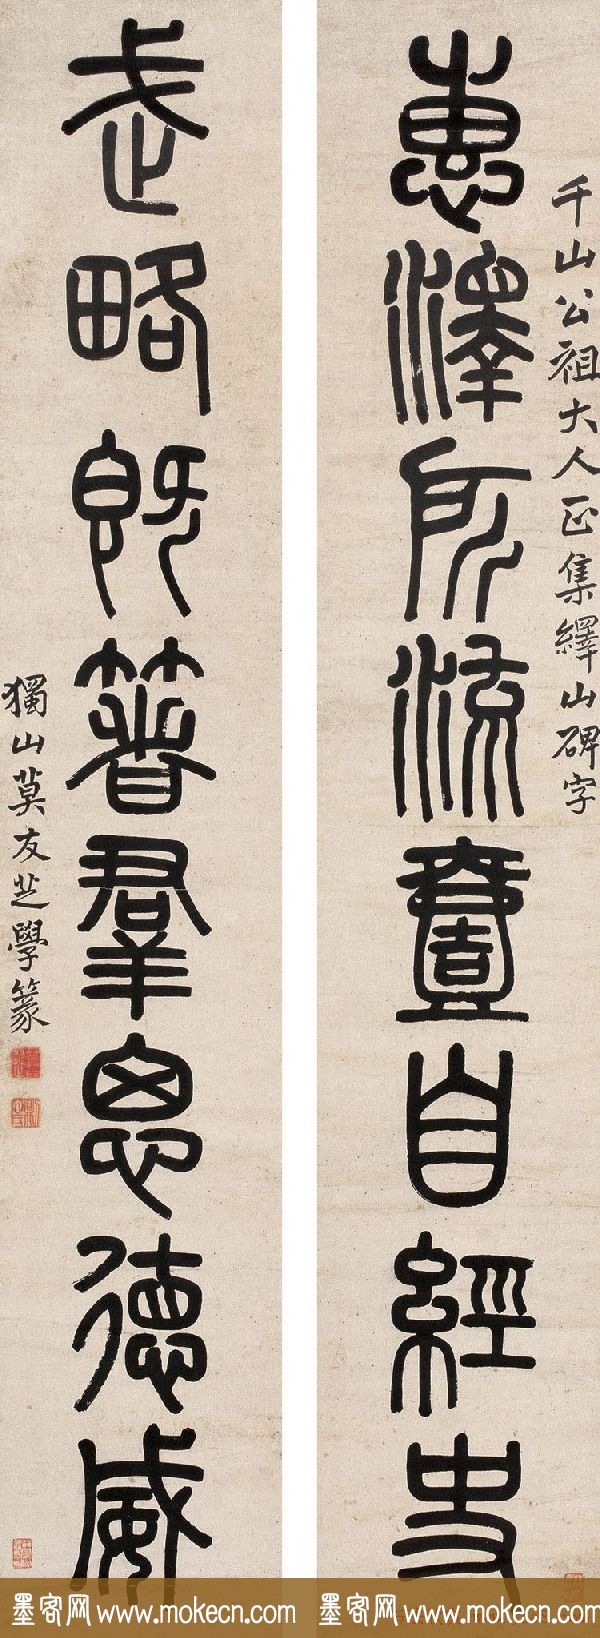 千山公祖大人正集繹山碑字
惠澤所流壹自經史
武略既箸羣思德威
獨山莫友芝學篆
墨客网 www.mokecn.com
墨客网 www.mokecn.com